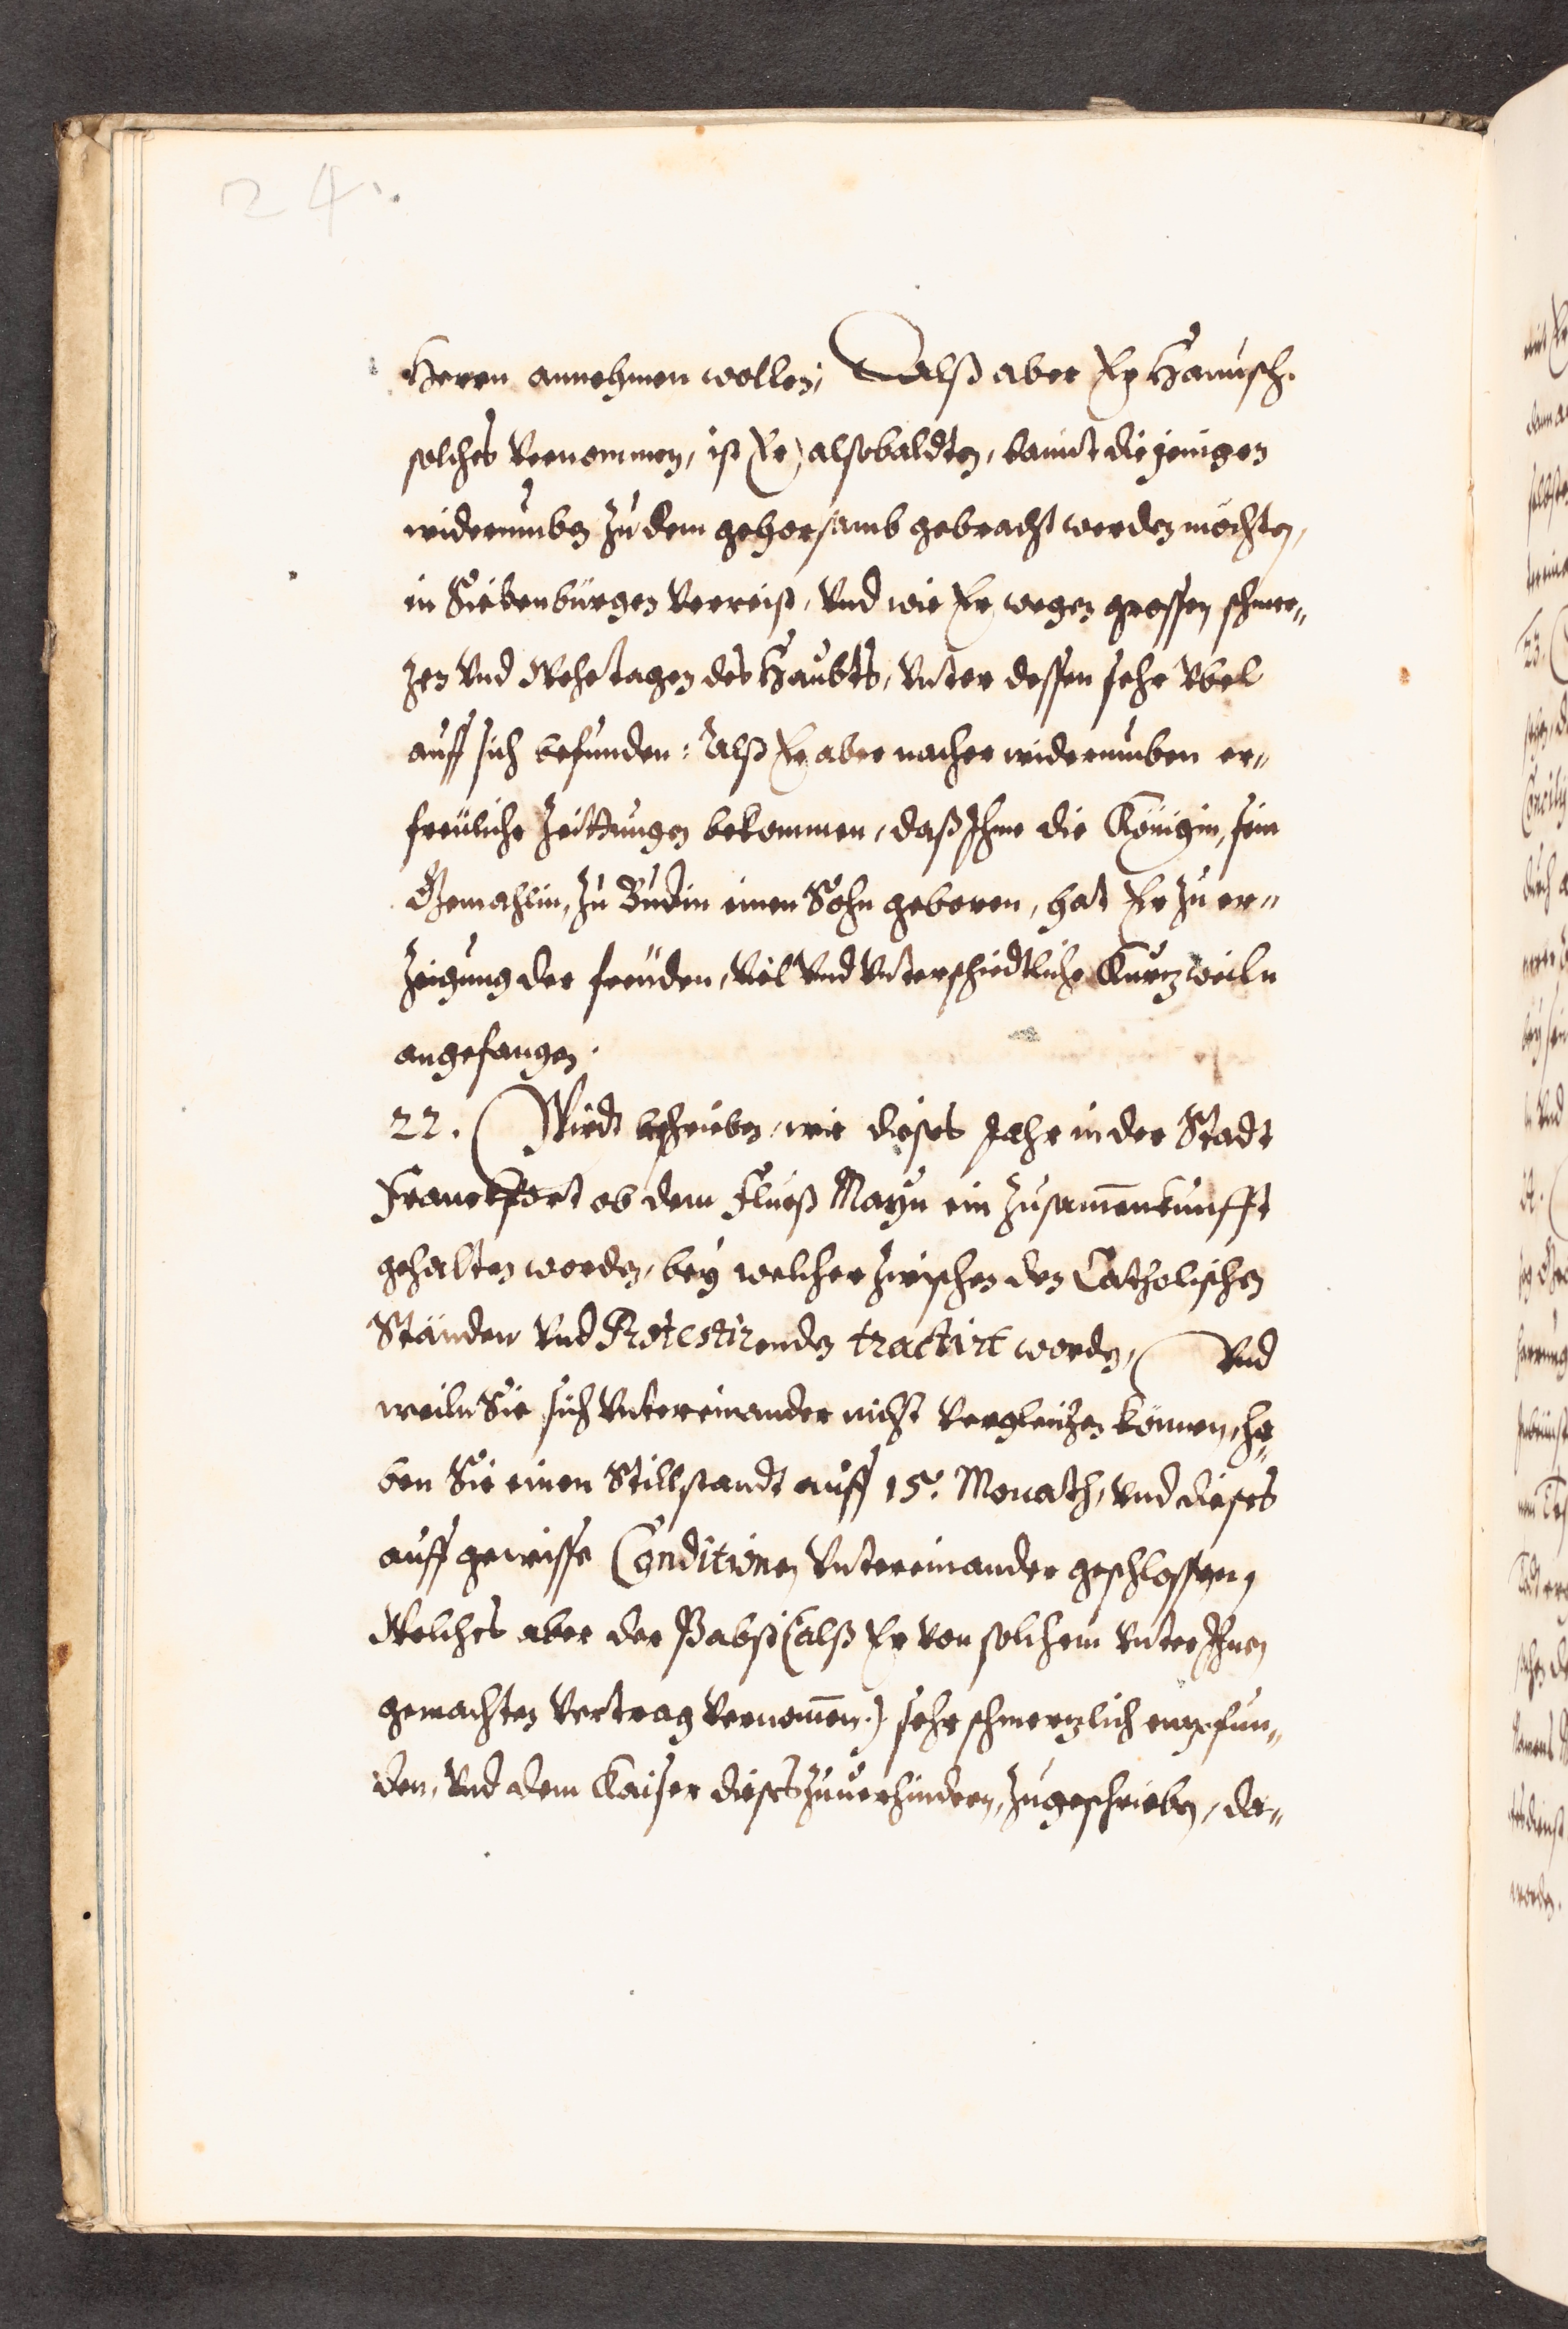 24.
Herrn annehmen wollen, Alß aber Er Hanusch.
solches vernommen, ist Er alsobaldten, damit die jenigen
widerumben zu dem gehorsamb gebracht werden möchten,
in Siebenbürgen verreist, vnd wie Er wegen grossen schmer„
zen vnd Wehetagen des Haubts, vnter dessen sehr vbel
auff sich befunden: Alß Er aber nacher widerumben er„
freüliche Zeittungen bekommen, daß Ihme die Königin, sein
Gemahlin, zu Budin einen Sohn geboren, hat Er zu er„
zeigung der freüden, viel vnd vnterschiedtliche Kurtzweiln
angefangen.
22. Wirdt beschrieben, wie dieses Jahr in der Stadt
Franckfort ob dem Flueß Mayn ein Zusam̄enkunfft
gehalten worden, bey welcher zwischen den Catholischen
Ständen vnd Protestirenden tractirt worden, vnd
weiln Sie sich vntereinander nicht vergleichen können, ha„
ben Sie einen Stillstandt auff 15. Monath, vnd dieses
auff gewisse Conditionen vntereinander geschlossen,
Welches aber der Pabst (alß Er von solchem vnter Ihnen
gemachten Vertrag vernom̄en.) sehr schmertzlich empfun„
den, vnd dem Kaiser dieses zuuerhindern, zugeschrieben, da„